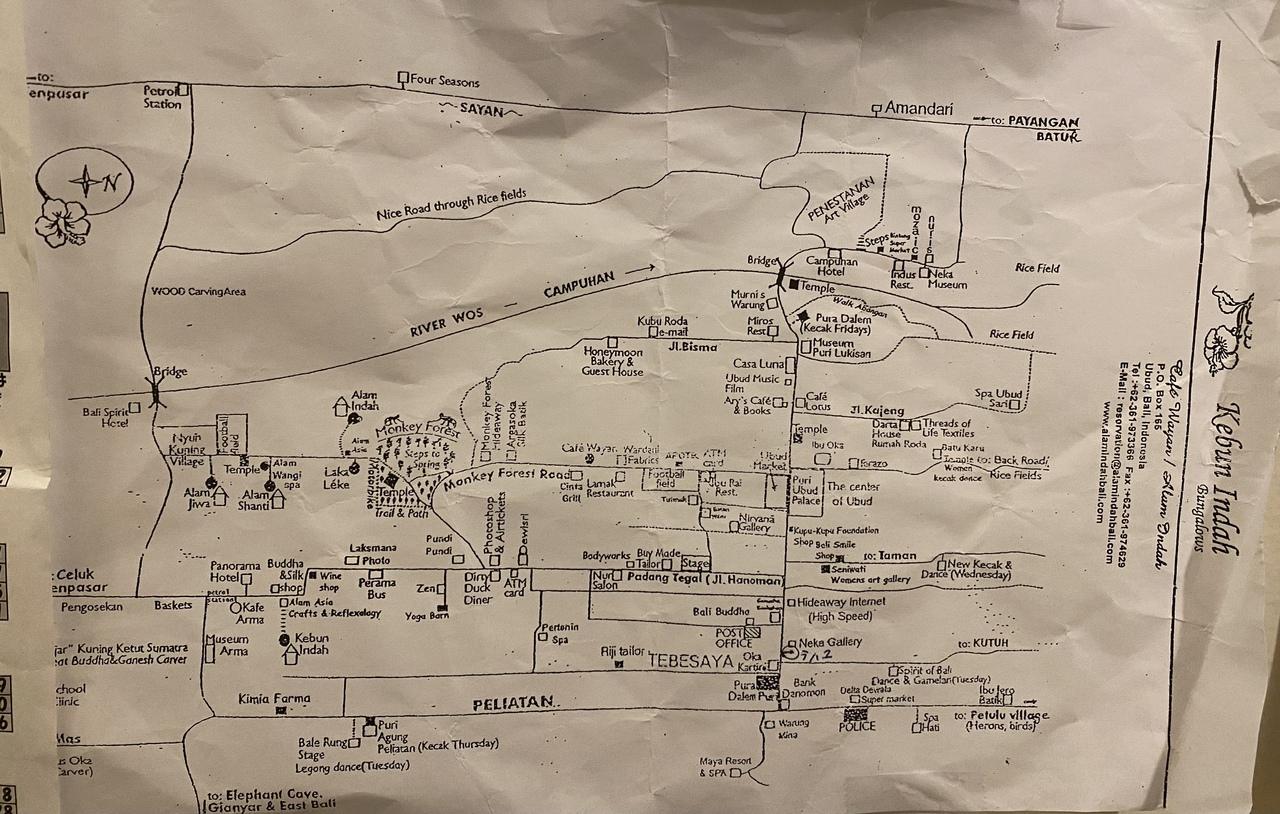 to:
enpasar
Petrol
Station
Four Seasons
SAYAN
Amandari
to: PAYANGAN
BATUR
N
Nice Road through Rice fields
PENESTANAN
Art Village
mozaic
nuris
Steps
Bintang
Super
Market
WOOD Carving Area
RIVER WOS – CAMPUHAN
Bridge
Campuhan
Hotel
Indus
Rest.
Neka
Museum
Rice Field
Temple
Murni's
Warung
Walk Abangan
Pura Dalem
(Kecak Fridays)
Rice Field
Kubu Roda
e-mail
Miros
Rest
Jl.Bisma
Museum
Puri Lukisan
Honeymoon
Bakery &
Guest House
Casa Luna
Ubud Music
Film
Ary's Café
& Books
Café
Lotus
Jl.Kajeng
Spa Ubud
Sari
Bridge
Bali Spirit
Hotel
Alam
Indah
Football
field
Nyuh
Kuning
Village
Temple
Alam
Wangi
spa
Alam
Jiwa
Alam
Shanti
Laka
Léke
Monkey Forest
Steps to
Spring
Motorbike
Temple
Trail & Path
Monkey Forest
Hideaway
Argasoka
Silk Batik
Monkey Forest Road
Café Wayan
Wardani
Fabrics
APOTK
ATM
card
Ubud
Market
Cinta
Grill
Lamak
Restaurant
Football
field
Ibu Rai
Rest.
Tutmak
Nirvana
Gallery
Temple
Darta
House
Rumah Roda
Threads of
Life Textiles
Ibu Oka
Torazo
Batu Karu
Temple
to: Back Road/
Rice Fields
Women
kecak dance
Puri
Ubud
Palace
The center
of Ubud
Kupu-Kupu Foundation
Shop
Beli Smile
Shop
to: Taman
Seniwati
Womens art gallery
New Kecak &
Dance (Wednesday)
Photoshop
& Airtickets
Dewisri
Pundi
Pundi
Laksmana
Photo
Bodyworks
Buy Made
Tailor
Stage
Panorama
Hotel
Buddha
&Silk
shop
Wine
shop
Perama
Bus
Zen
Dirty
Duck
Diner
ATM
card
Nur
Salon
Padang Tegal (Jl.Hanoman)
: Celuk
enpasar
Pengosekan
Baskets
petrol
station
Kafe
Arma
Alam Asia
Crafts & Reflexology
Yoga Barn
Bali Buddha
Hideaway Internet
(High Speed)
POST
OFFICE
Neka Gallery
to: KUTUH
Pertenin
Spa
Riji tailor
TEBESAYA
Oka
Kartini
jar" Kuning Ketut Sumatra
eat Buddha&Ganesh Carver
Museum
Arma
Kebun
Indah
Spirit of Bali
Dance & Gamelan(Tuesday)
Pura
Dalem Puri
Bank
Danomon
Delta Dewata
Super market
Ibu Jero
Batik
chool
linic
Kimia Farma
PELIATAN
Puri
Agung
Peliatan (Kecak Thursday)
Bale Rung
Stage
Legong dance(Tuesday)
Warung
Mina
POLICE
Spa
Hati
to: Petulu village
(Herons, birds)
Mas
s Oka
arver)
Maya Resort
& SPA
to: Elephant Cave.
Gianyar & East Bali
Kebun Indah
Bungalows
Café Wayan / Alam Indah
P.O. Box 166
Ubud, Bali, Indonesia
Tel :+62-361-973366 Fax :+62-361-974629
E-Mail : reservation@alamindahbali.com
www.alamindahbali.com